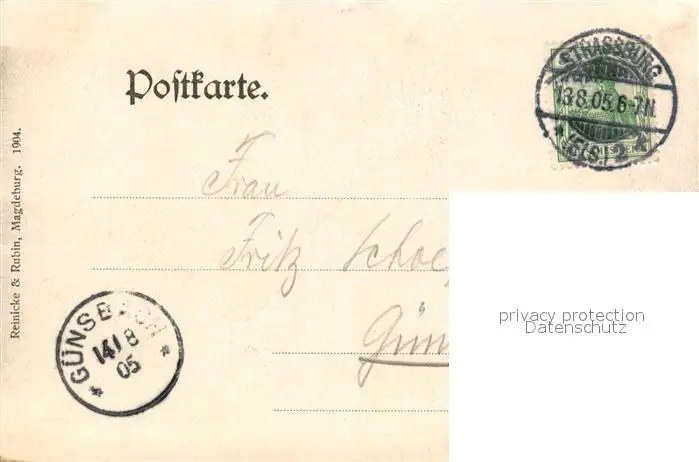 Postkarte.
STRASSBURG
13.8.05.6-7N.
* (ELS.) 2
Frau
Fritz Schoe
Gün
GÜNSBACH
14/8
05
Reinicke & Rubin, Magdeburg. 1904.
privacy protection
Datenschutz